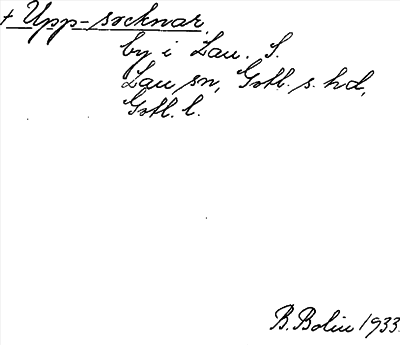 + Upp-socknar
by i Lau. S.
Lau sn, Gotl. s. hd,
Gotl. l.
B. Bolin 1933.